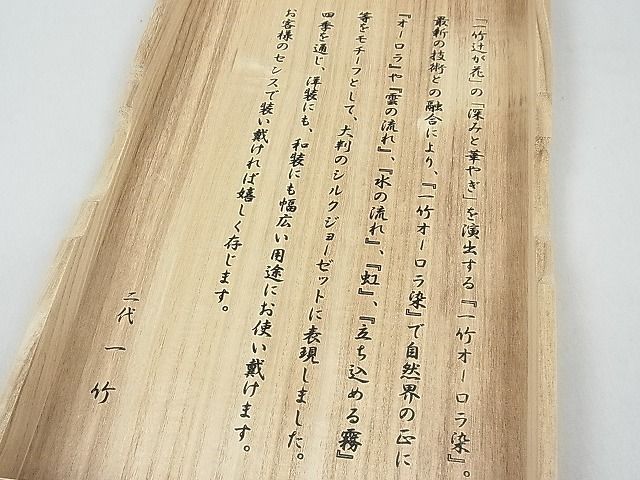 「一竹辻が花」の「深みと華やぎ」を演出する『一竹オーロラ染』。
最新の技術との融合により、『一竹オーロラ染』で自然界の正に
『オーロラ』や『雲の流れ』、『水の流れ』、『虹』、『立ち込める霧』
等をモチーフとして、大判のシルクジョーゼットに表現しました。
四季を通じ、洋装にも、和装にも幅広い用途にお使い戴けます。
お客様のセンスで装い戴ければ嬉しく存じます。
二代 一竹